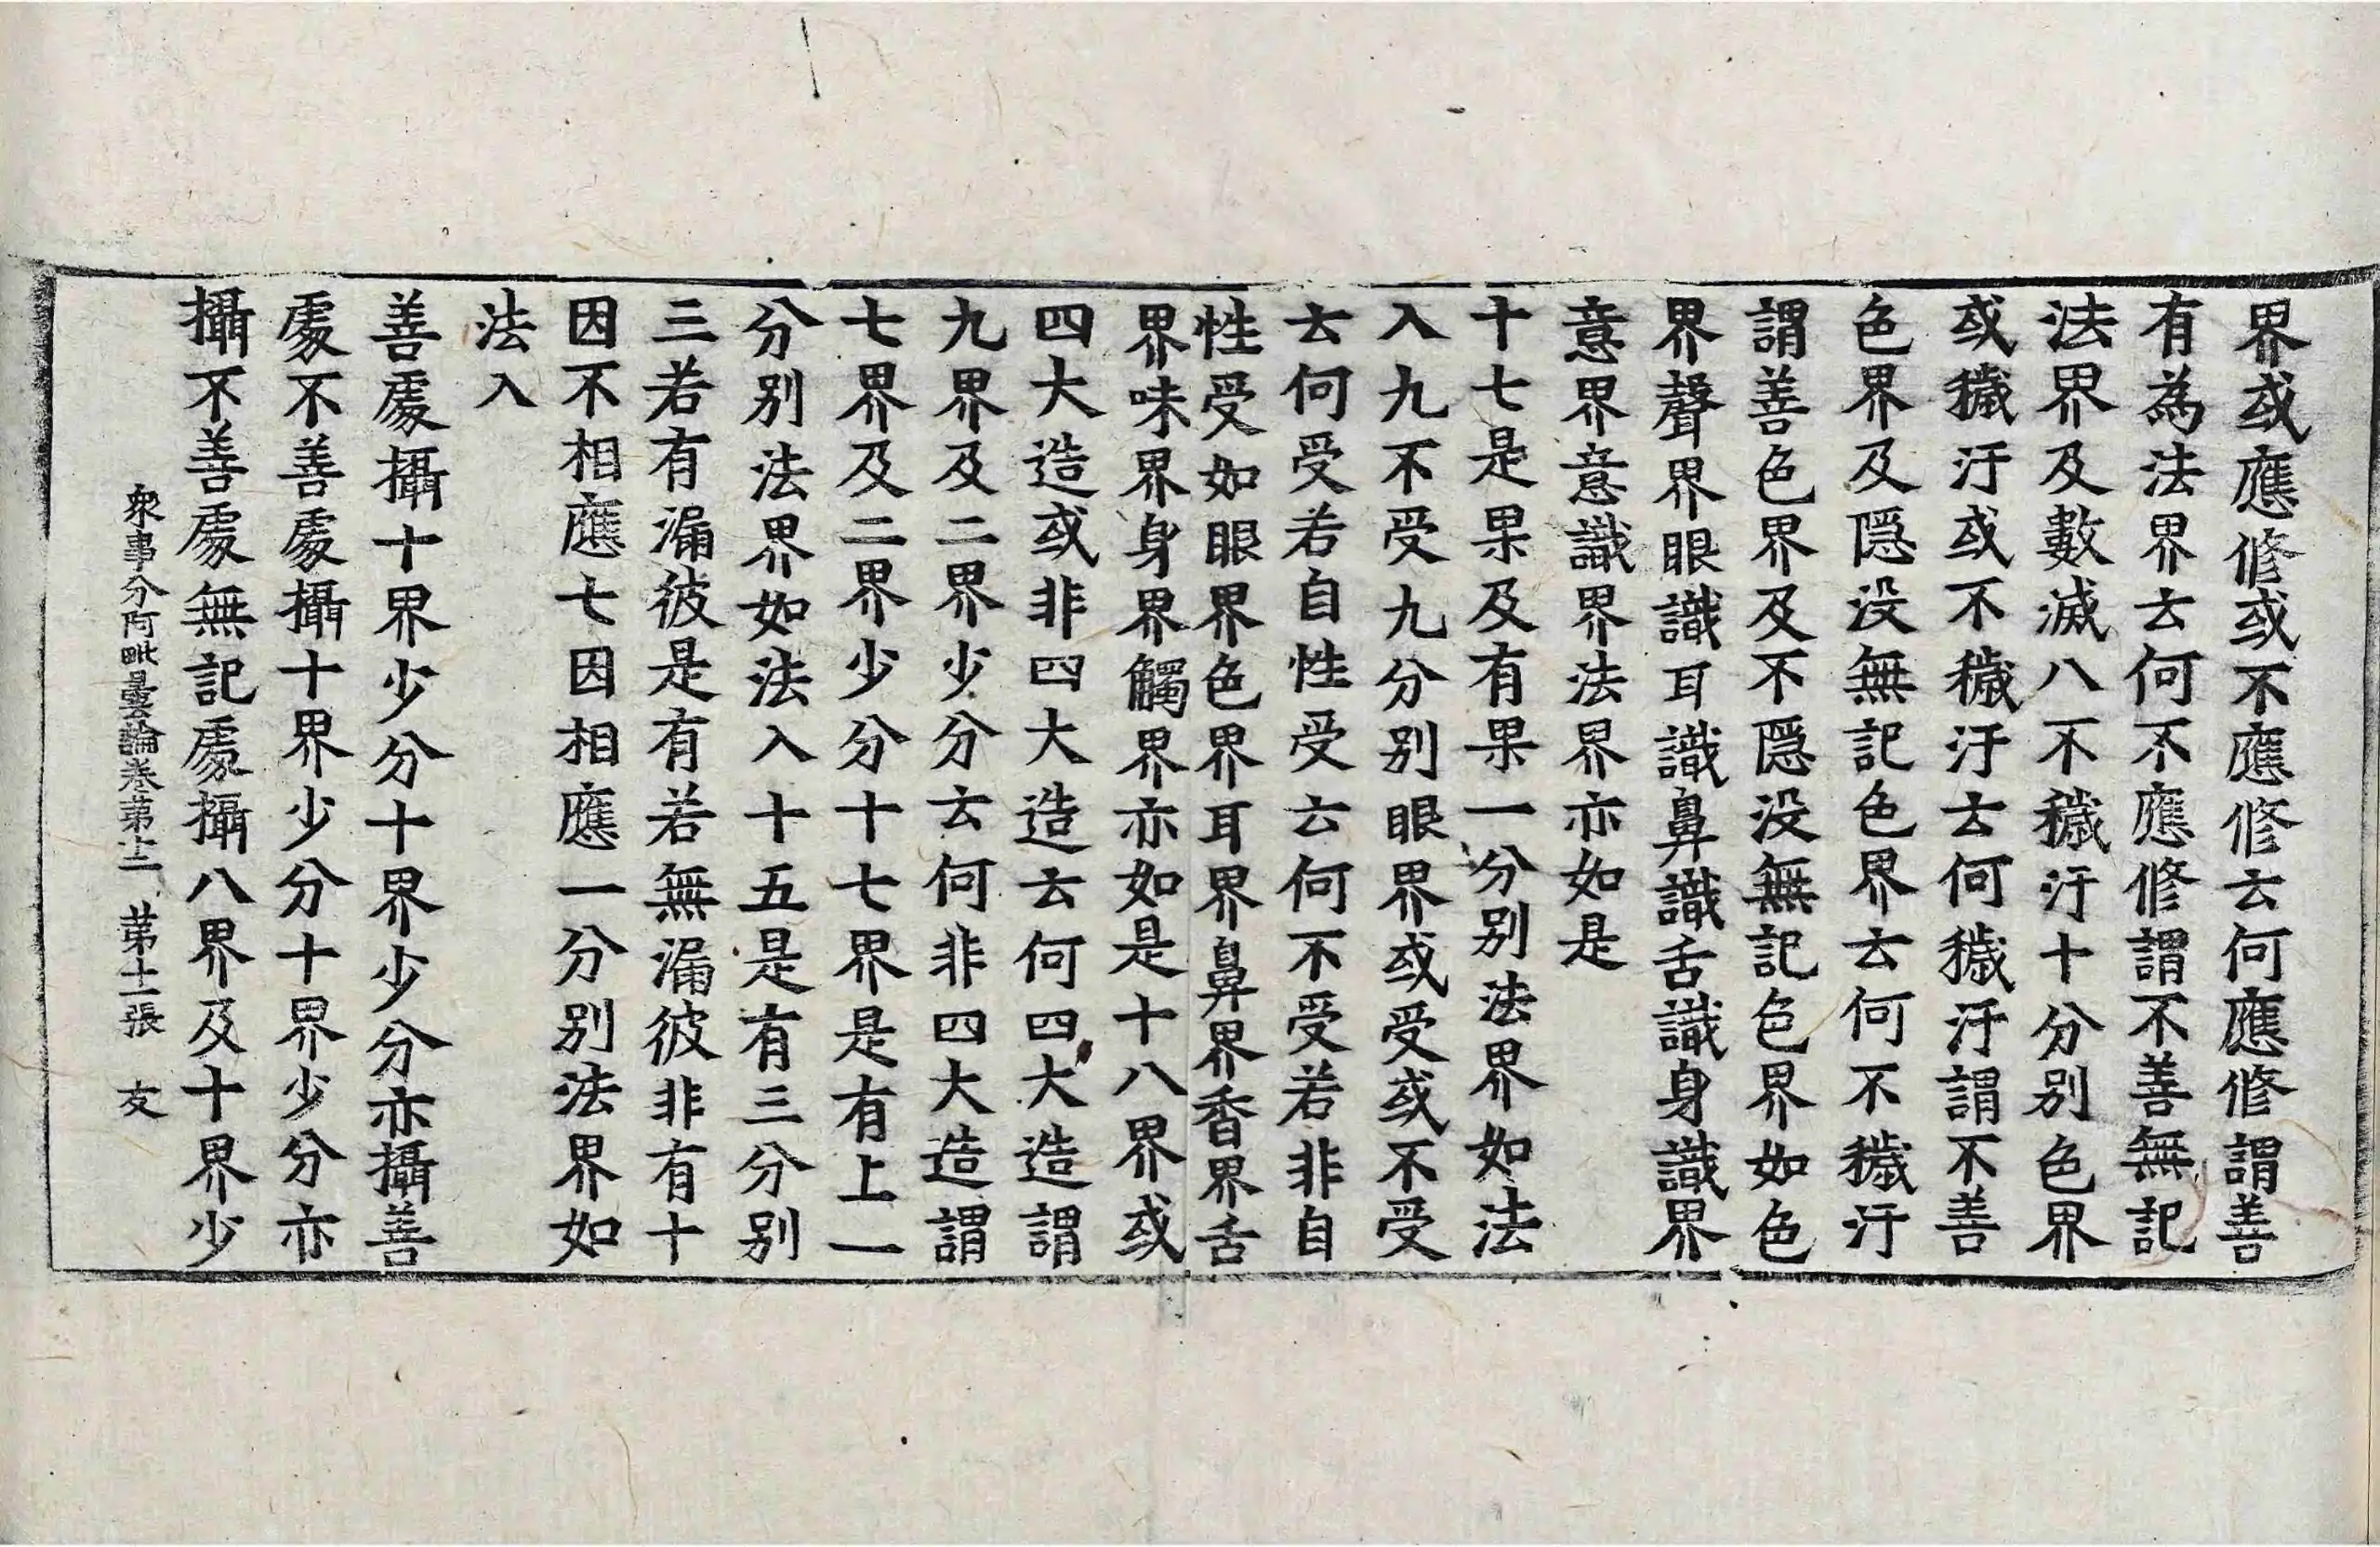 界或應修或不應修云何應修謂善
有為法界云何不應修謂不善無記
法界及數滅八不穢汙十分別色界
或穢汙或不穢汙云何穢汙謂不善
色界及隱没無記色界云何不穢汙
謂善色界及不隱没無記色界如色
界聲界眼識耳識鼻識舌識身識界
意界意識界法界亦如是
十七是果及有果一分別法界如法
入九不受九分別眼界或受或不受
云何受若自性受云何不受若非自
性受如眼界色界耳界鼻界香界舌
界味界身界觸界亦如是十八界或
四大造或非四大造云何四大造謂
九界及二界少分云何非四大造謂
七界及二界少分十七界是有上一
分別法界如法入十五是有三分別
三若有漏彼是有若無漏彼非有十
因不相應七因相應一分別法界如
法入
善處攝十界少分十界少分亦攝善
處不善處攝十界少分十界少分亦
攝不善處無記處攝八界及十界少
衆事分阿毗曇論卷第十二 第十一張 友